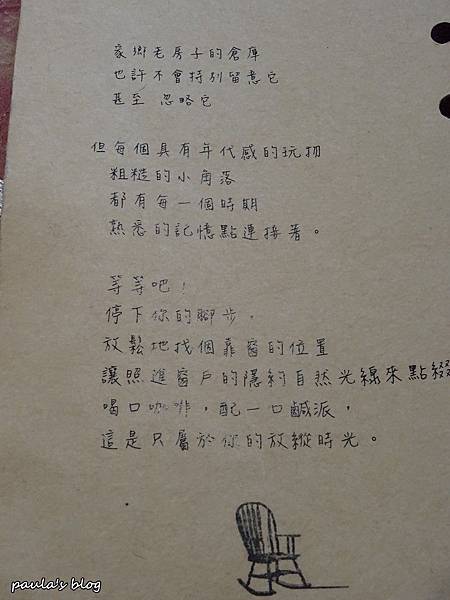 家鄉老房子的倉庫
也許不會特別留意它
甚至 忽略它
但每個具有年代感的玩物
粗糙的小角落
都有每一個時期
熟悉的記憶點連接著。
等等吧！
停下你的腳步，
放鬆地找個靠窗的位置
讓照進窗戶的隱約自然光線來點綴
喝口咖啡，配一口鹹派，
這是只屬於你的放縱時光。
paula's blog